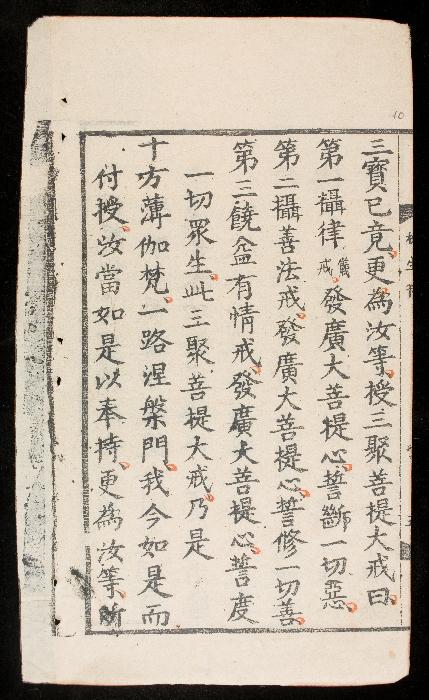 三寶已竟更為汝等授三聚菩提大戒曰
第一攝律儀戒發廣大菩提心誓斷一切惡
第二攝善法戒發廣大菩提心誓修一切善
第三饒益有情戒發廣大菩提心誓度
一切眾生此三聚菩提大戒乃是
十方薄伽梵一路涅槃門我今如是而
付授汝當如是以奉持更為汝等所
10